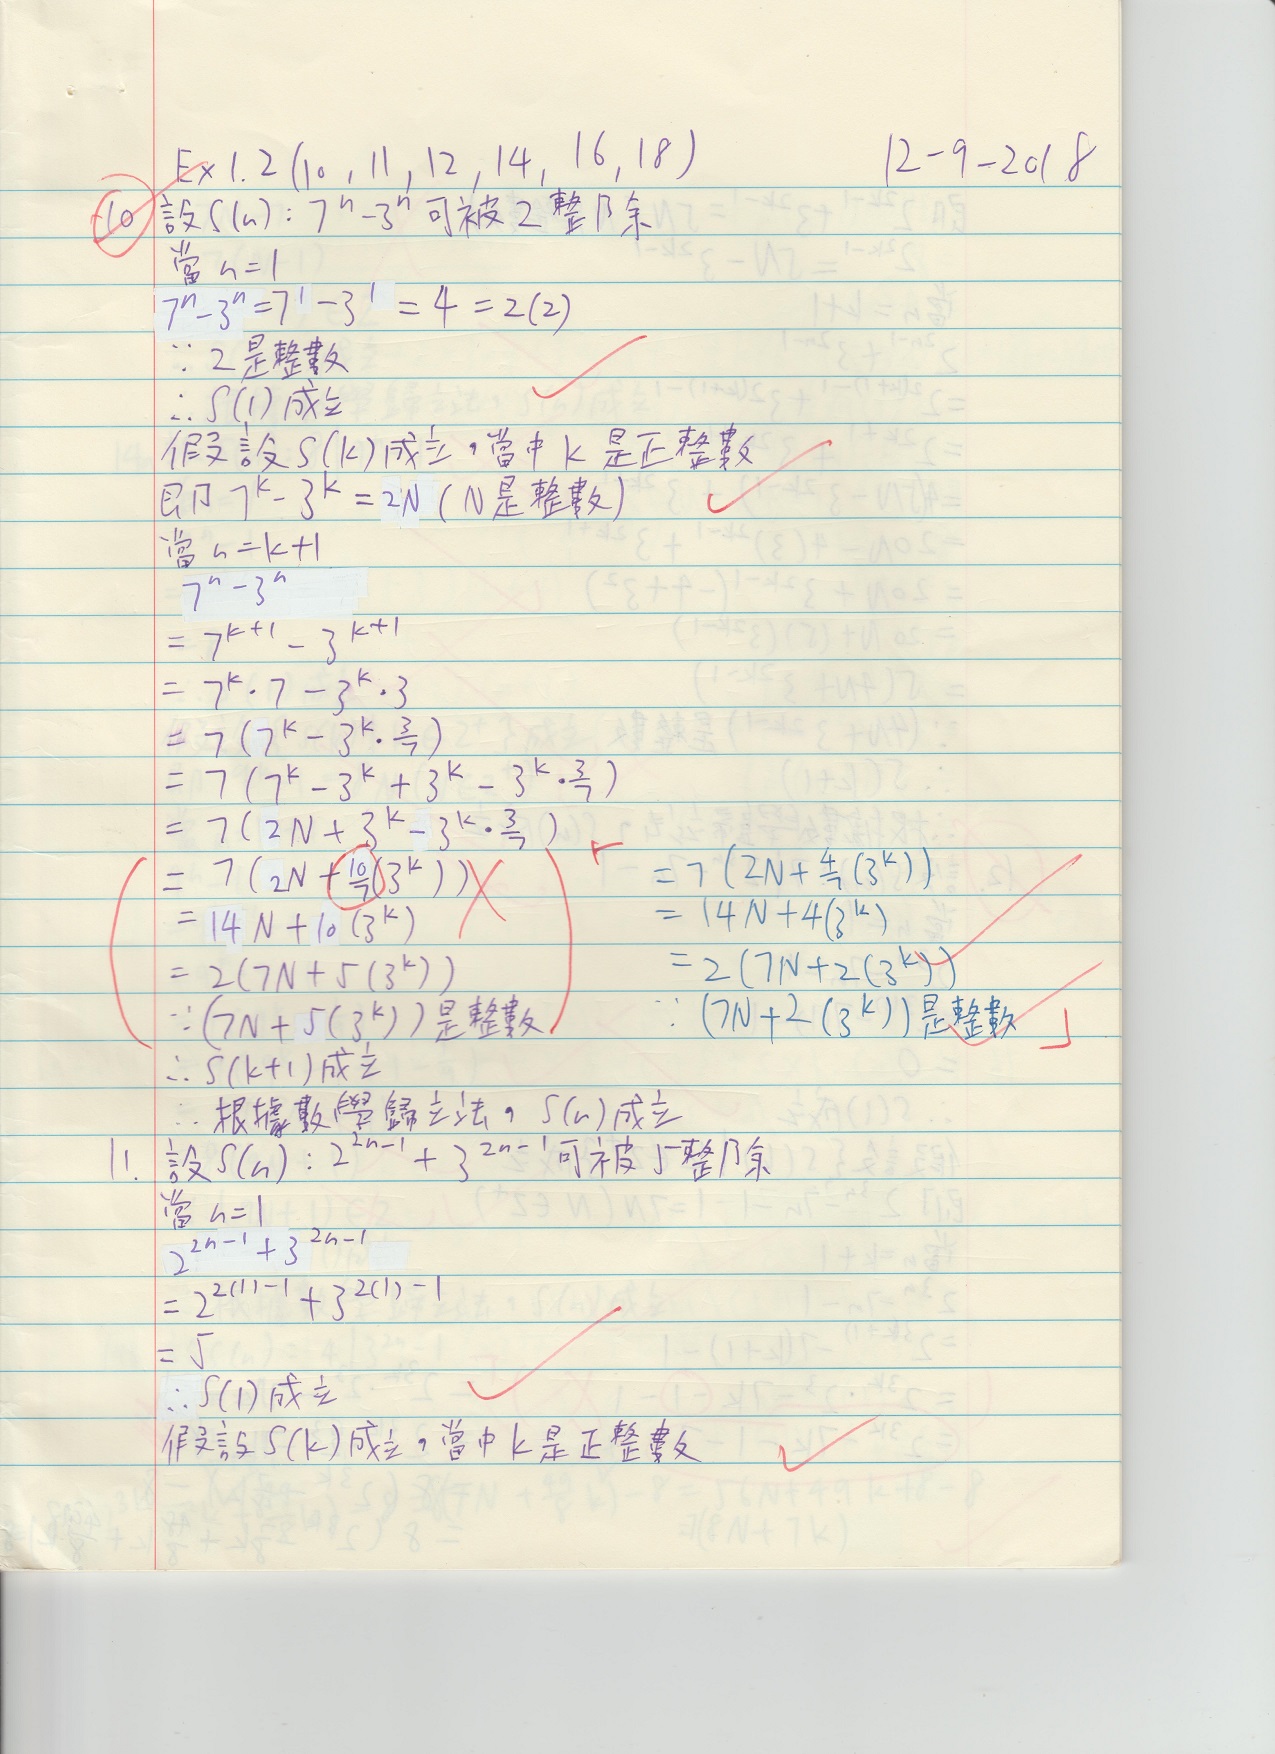 Ex 1.2 (10, 11, 12, 14, 16, 18) 12-9-2018
10 設S(n): 7ⁿ-3ⁿ可被2整除
當n=1
7ⁿ-3ⁿ=7¹-3¹=4=2(2)
∵2是整數
∴S(1)成立
假設S(k)成立,當中k是正整數
即7ᵏ-3ᵏ=2N (N是整數)
當n=k+1
7ⁿ-3ⁿ
=7ᵏ⁺¹-3ᵏ⁺¹
=7ᵏ·7-3ᵏ·3
=7(7ᵏ-3ᵏ·3/7)
=7(7ᵏ-3ᵏ+3ᵏ-3ᵏ·3/7)
=7(2N+3ᵏ-3ᵏ·3/7)
=7(2N+10/7(3ᵏ))
=14N+10(3ᵏ)
=2(7N+5(3ᵏ))
∵(7N+5(3ᵏ))是整數
=7(2N+4/7(3ᵏ))
=14N+4(3ᵏ)
=2(7N+2(3ᵏ))
∵(7N+2(3ᵏ))是整數
∴S(k+1)成立
∴根據數學歸立法,S(n)成立
11. 設S(n): 2²ⁿ⁻¹+3²ⁿ⁻¹可被5整除
當n=1
2²ⁿ⁻¹+3²ⁿ⁻¹
=2²⁽¹⁾⁻¹+3²⁽¹⁾⁻¹
=5
∴S(1)成立
假設S(k)成立,當中k是正整數